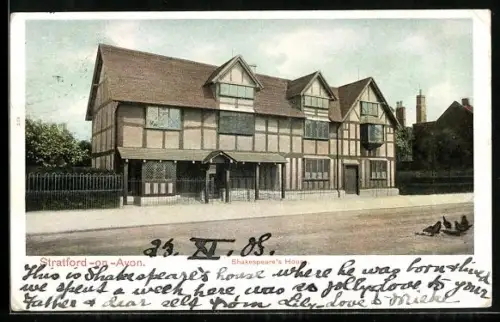 Stratford-on-Avon.
23. XI. 08.
Shakespeare's House.
This is Shakespeare's house where he was born & lived
we spent a week here was so jolly love to your
Father & dear self from Lily - Love to